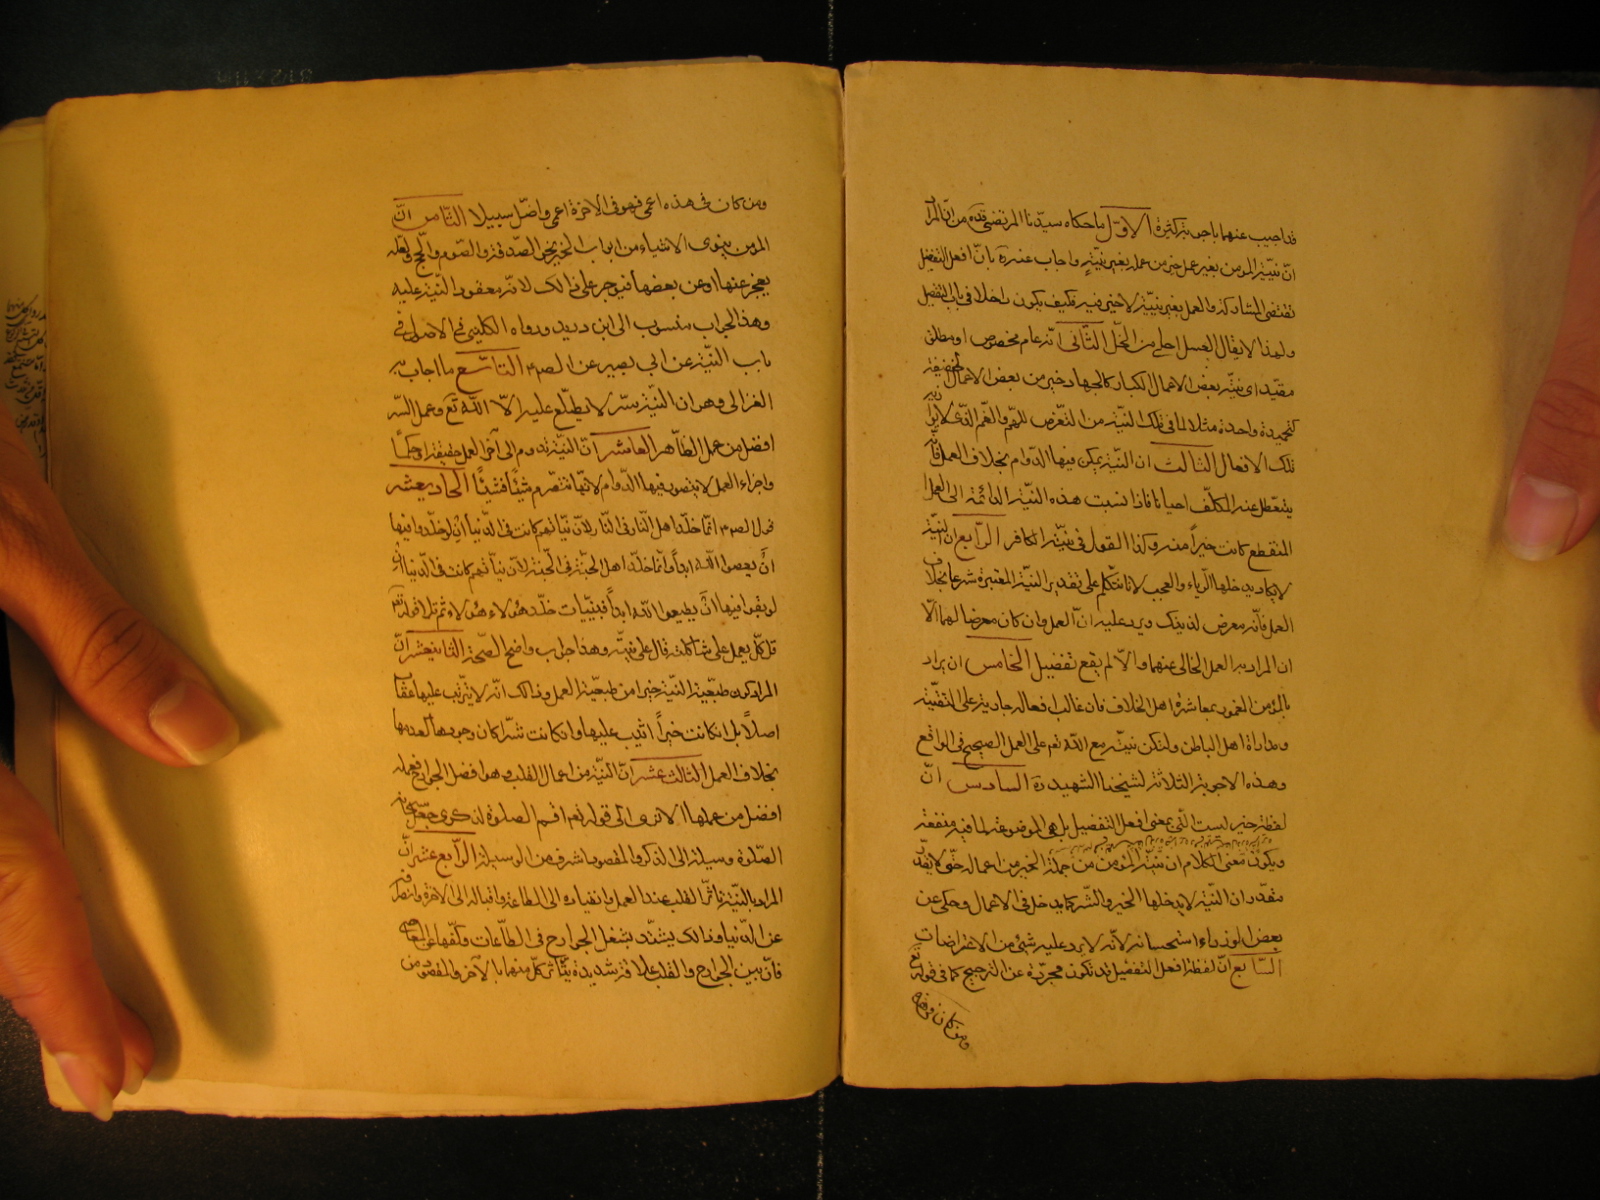 قد اجيب عنهما باجوبة كثيرة الاوّل ما حكاه سيّدنا المرتضى قده من انّ المراد
انّ نيّة المومن بغير عمل خير من عمله بغير نيّة واجاب عنه بانّ افعل التفضيل
تقتضى المشاركة والعمل بغير نيّة لا خير فيه فكيف يكون داخلا فى باب التفضيل
ولهذا لا يقال العسل احلى من الخلّ الثّانى انّه عام مخصوص او مطلق
مقيّد اى نيّة بعض الاعمال الكبار كالجهاد خير من بعض الاعمال الخفيفة
كتحميدة واحدة مثلا لما فى تلك النيّة من التعرّض للهم والغم الذّى لا يوازيه
تلك الافعال الثالث ان النيّة يمكن فيها الدّوام بخلاف العمل فانّه
يتعطل عنه المكلّف احيانا فاذا نسبت هذه النيّة الدائمة الى العمل
المنقطع كانت خيراً منه وكذا القول فى نيّة الكافر الرّابع ان النيّة
لا يكاد يدخلها الرّياء والعجب لانا نتكلم على تقدير النيّة المعتبرة شرعا بخلاف
العمل فانّه معرض لذينك ويرد عليه انّ العمل وان كان معرضا لهما الّا
ان المراد به العمل الخالى عنهما والّا لم يقع تفضيل الخامس ان يراد
بالمؤمن المغمور بمعاشرة اهل الخلاف فان غالب افعاله جارية على التقيّة
ومداراة اهل الباطن ولتكن نيّته مع الله تعم على العمل الصحيح فى الواقع
وهذه الاجوبة الثلاثة لشيخنا الشهيد ره السادس انّ
لفظة خير ليست الّتى بمعنى افعل التفضيل بل هى الموضوعة لما فيه منفعة
ويكون معنى الكلام ان نيّة المؤمن من جملة الخير من اعماله حتّى لا يقدّر
مقدّر ان النيّة لا يدخلها الخير والشّر كما يدخل فى الاعمال وحكى عن
بعض الوزراء استحسانه لانّه لا يرد عليه شئ من الاعتراضات
السّابع انّ لفظة افعل التفضيل قد تكون مجرّدة عن الترجيح كما فى قوله تع
ومن كان فى هذه
ومن كان فى هذه اعمى فهو فى الاخرة اعمى واضلّ سبيلا الثّامن انّ
المومن ينوى الاشياء من ابواب الخير نحو الصّدقة والصّوم والحّج ولعّله
يعجز عنها او عن بعضها فيوجر على ذالك لانّه معقود النّية عليه
وهذا الجواب منسوب الى ابن دريد ورواه الكلينى فى الاصول فى
باب النّية عن ابى بصير عن الص ع م التاسّع ما اجاب به
الغزالى وهو ان النّية سّر لا يطّلع عليه الّا اللّه تع وعمل السّر
افضل من عمل الظّاهر العاشر انّ النيّة تدوم الى آخر العمل حقيقة او حكماً
واجزاء العمل لا يتصور فيها الدّوام لانّها تتصرّم شيئًا فشيئًا الحاديعشر
قول الص ع م انّما خلّد اهل النّار فى النّار لانّ نيّاتهم كانت فى الدّنيا ان لو خلّدوا فيها
انّ يعصوا اللّه ابداً وانّما خلّد اهل الجنّة فى الجنّة لانّ نيّاتهم كانت فى الدّنيا ان
لو بقوا فيها انّ يطيعوا اللّه ابداً فبنيّات خلّد هولاء وهؤلاء ثم تلا قوله تعم
قل كلّ يعمل على شاكلته قال على نيّته وهذا جواب واضح الصّحة الثانيعشر انّ
المراد كون طبيعّة النيّة خيرا من طبيعّة العمل وذالك انّه لا يترتّب عليها عقاب
اصلاً بل ان كانت خيراً اثيب عليها وان كانت شّرا كان وجودها كعدمها
بخلاف العمل الثالث عشر انّ النيّة من اعمال القلب وهو افضل الجوارح فعمله
افضل من عملها الا ترى الى قوله تعم اقم الصلوة لذكرى جعل سبحانه
الصّلوة وسيلة الى الذكر والمقصود اشرف من الوسيلة الرّابع عشر انّ
المراد بالنّية تاثّر القلب عند العمل وانقياده الى الطاعة واقباله الى الاخرة وانصرافه
عن الدّنيا وذالك يشتدّ بشغل الجوارح فى الطّاعات وكفّها عن المعاصى
فانّ بين الجوارح والقلب علاقة شديدة يتّاثر كلّ منهما بالآخر والمقصود من